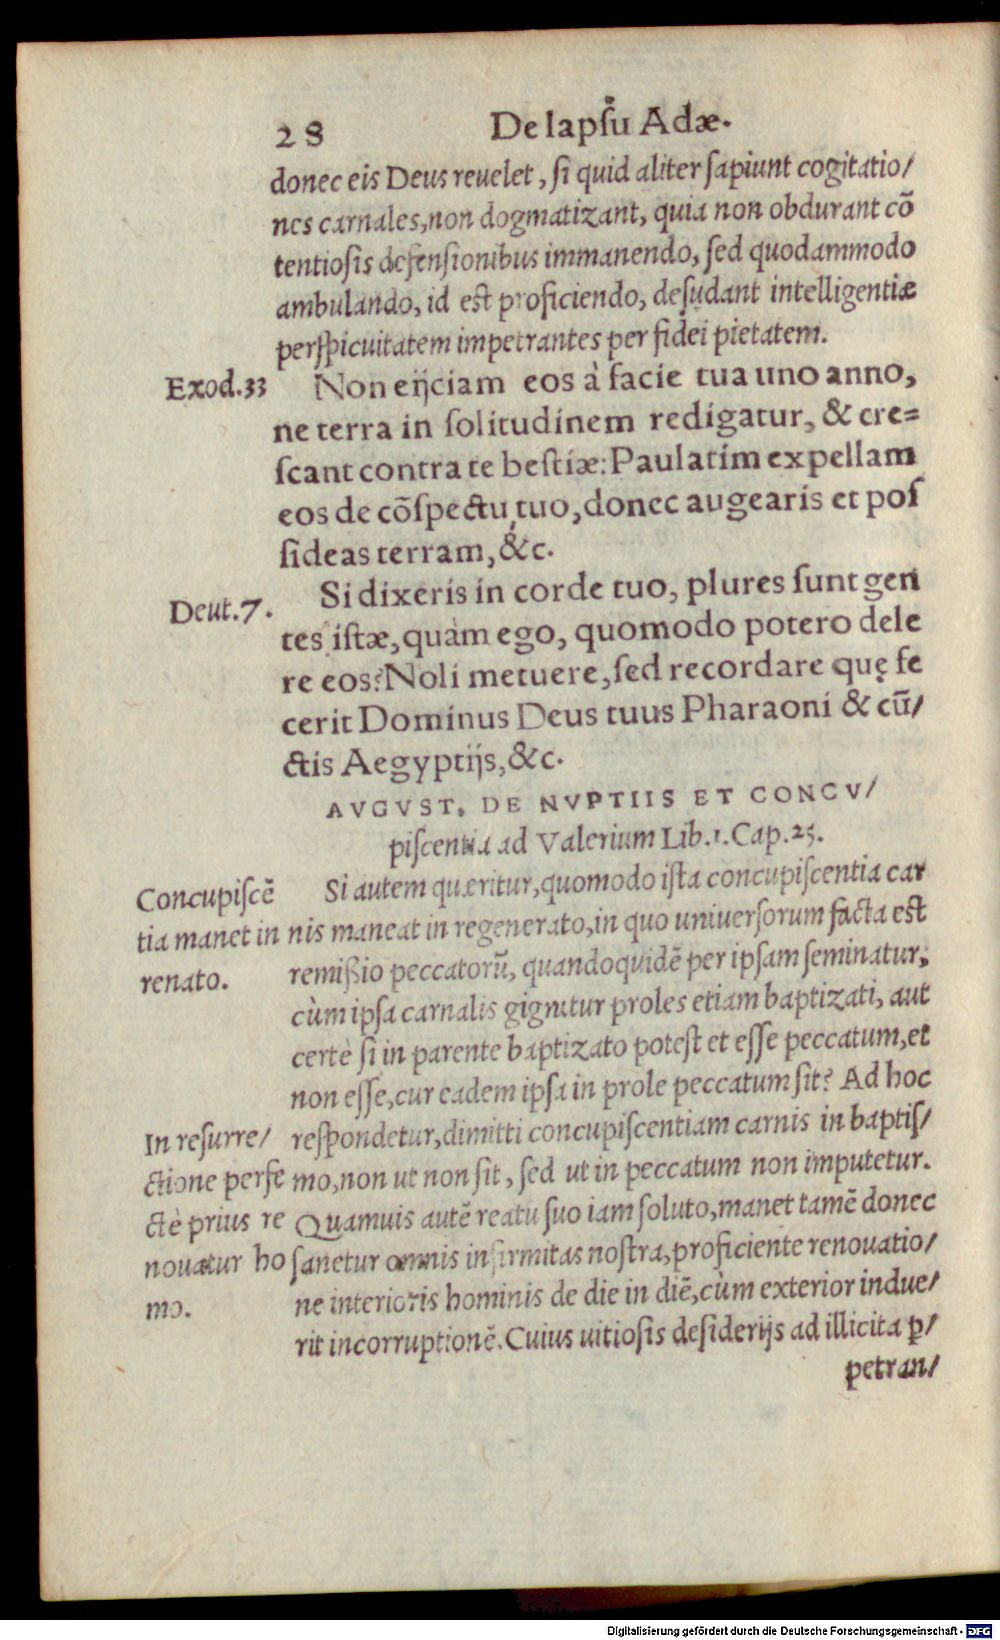 28 De lapſu Adæ.
donec eis Deus reuelet, ſi quid aliter ſapiunt cogitatio/
nes carnales, non dogmatizant, quia non obdurant cõ
tentioſis defenſionibus immanendo, ſed quodammodo
ambulando, id est proficiendo, deſudant intelligentiæ
perſpicuitatem impetrantes per fidei pietatem.
Exod.33
Non eijciam eos à facie tua uno anno,
ne terra in ſolitudinem redigatur, & cre=
ſcant contra te beſtiæ: Paulatim expellam
eos de cõſpectu tuo, donec augearis et poſ
ſideas terram, &c.
Deut.7.
Si dixeris in corde tuo, plures ſunt gen
tes iſtæ, quàm ego, quomodo potero dele
re eos? Noli metuere, ſed recordare quę fe
cerit Dominus Deus tuus Pharaoni & cũ/
ctis Aegyptijs, &c.
AVGVST. DE NVPTIIS ET CONCV/
piſcentia ad Valerium Lib.1. Cap.25.
Concupiſcẽ
tia manet in
renato.
Si autem quæritur, quomodo iſta concupiſcentia car
nis maneat in regenerato, in quo uniuerſorum facta eſt
remißio peccatorũ, quandoquidẽ per ipſam ſeminatur,
cùm ipſa carnalis gignitur proles etiam baptizati, aut
certè ſi in parente baptizato poteſt et eſſe peccatum, et
non eſſe, cur eadem ipſa in prole peccatum ſit? Ad hoc
In reſurre/
ctione perfe
ctè prius re
nouatur ho
mo.
reſpondetur, dimitti concupiſcentiam carnis in baptiſ/
mo, non ut non ſit, ſed ut in peccatum non imputetur.
Quamuis autẽ reatu ſuo iam ſoluto, manet tamẽ donec
ſanetur omnis infirmitas noſtra, proficiente renouatio/
ne interioris hominis de die in diẽ, cùm exterior indue/
rit incorruptionẽ. Cuius uitioſis deſiderijs ad illicita ꝑ/
petran/
Digitalisierung gefördert durch die Deutsche Forschungsgemeinschaft - DFG